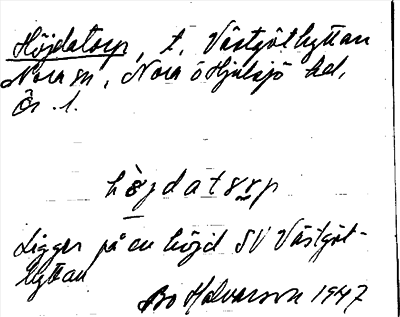 Höjdatorp, t. Västgöthyttan
Nora sn, Nora o Hjulsjö hd,
Ör. l.
hözdatorp
Ligger på en höjd SV Västgöt-
hyttan
Bo Halvarson 1947